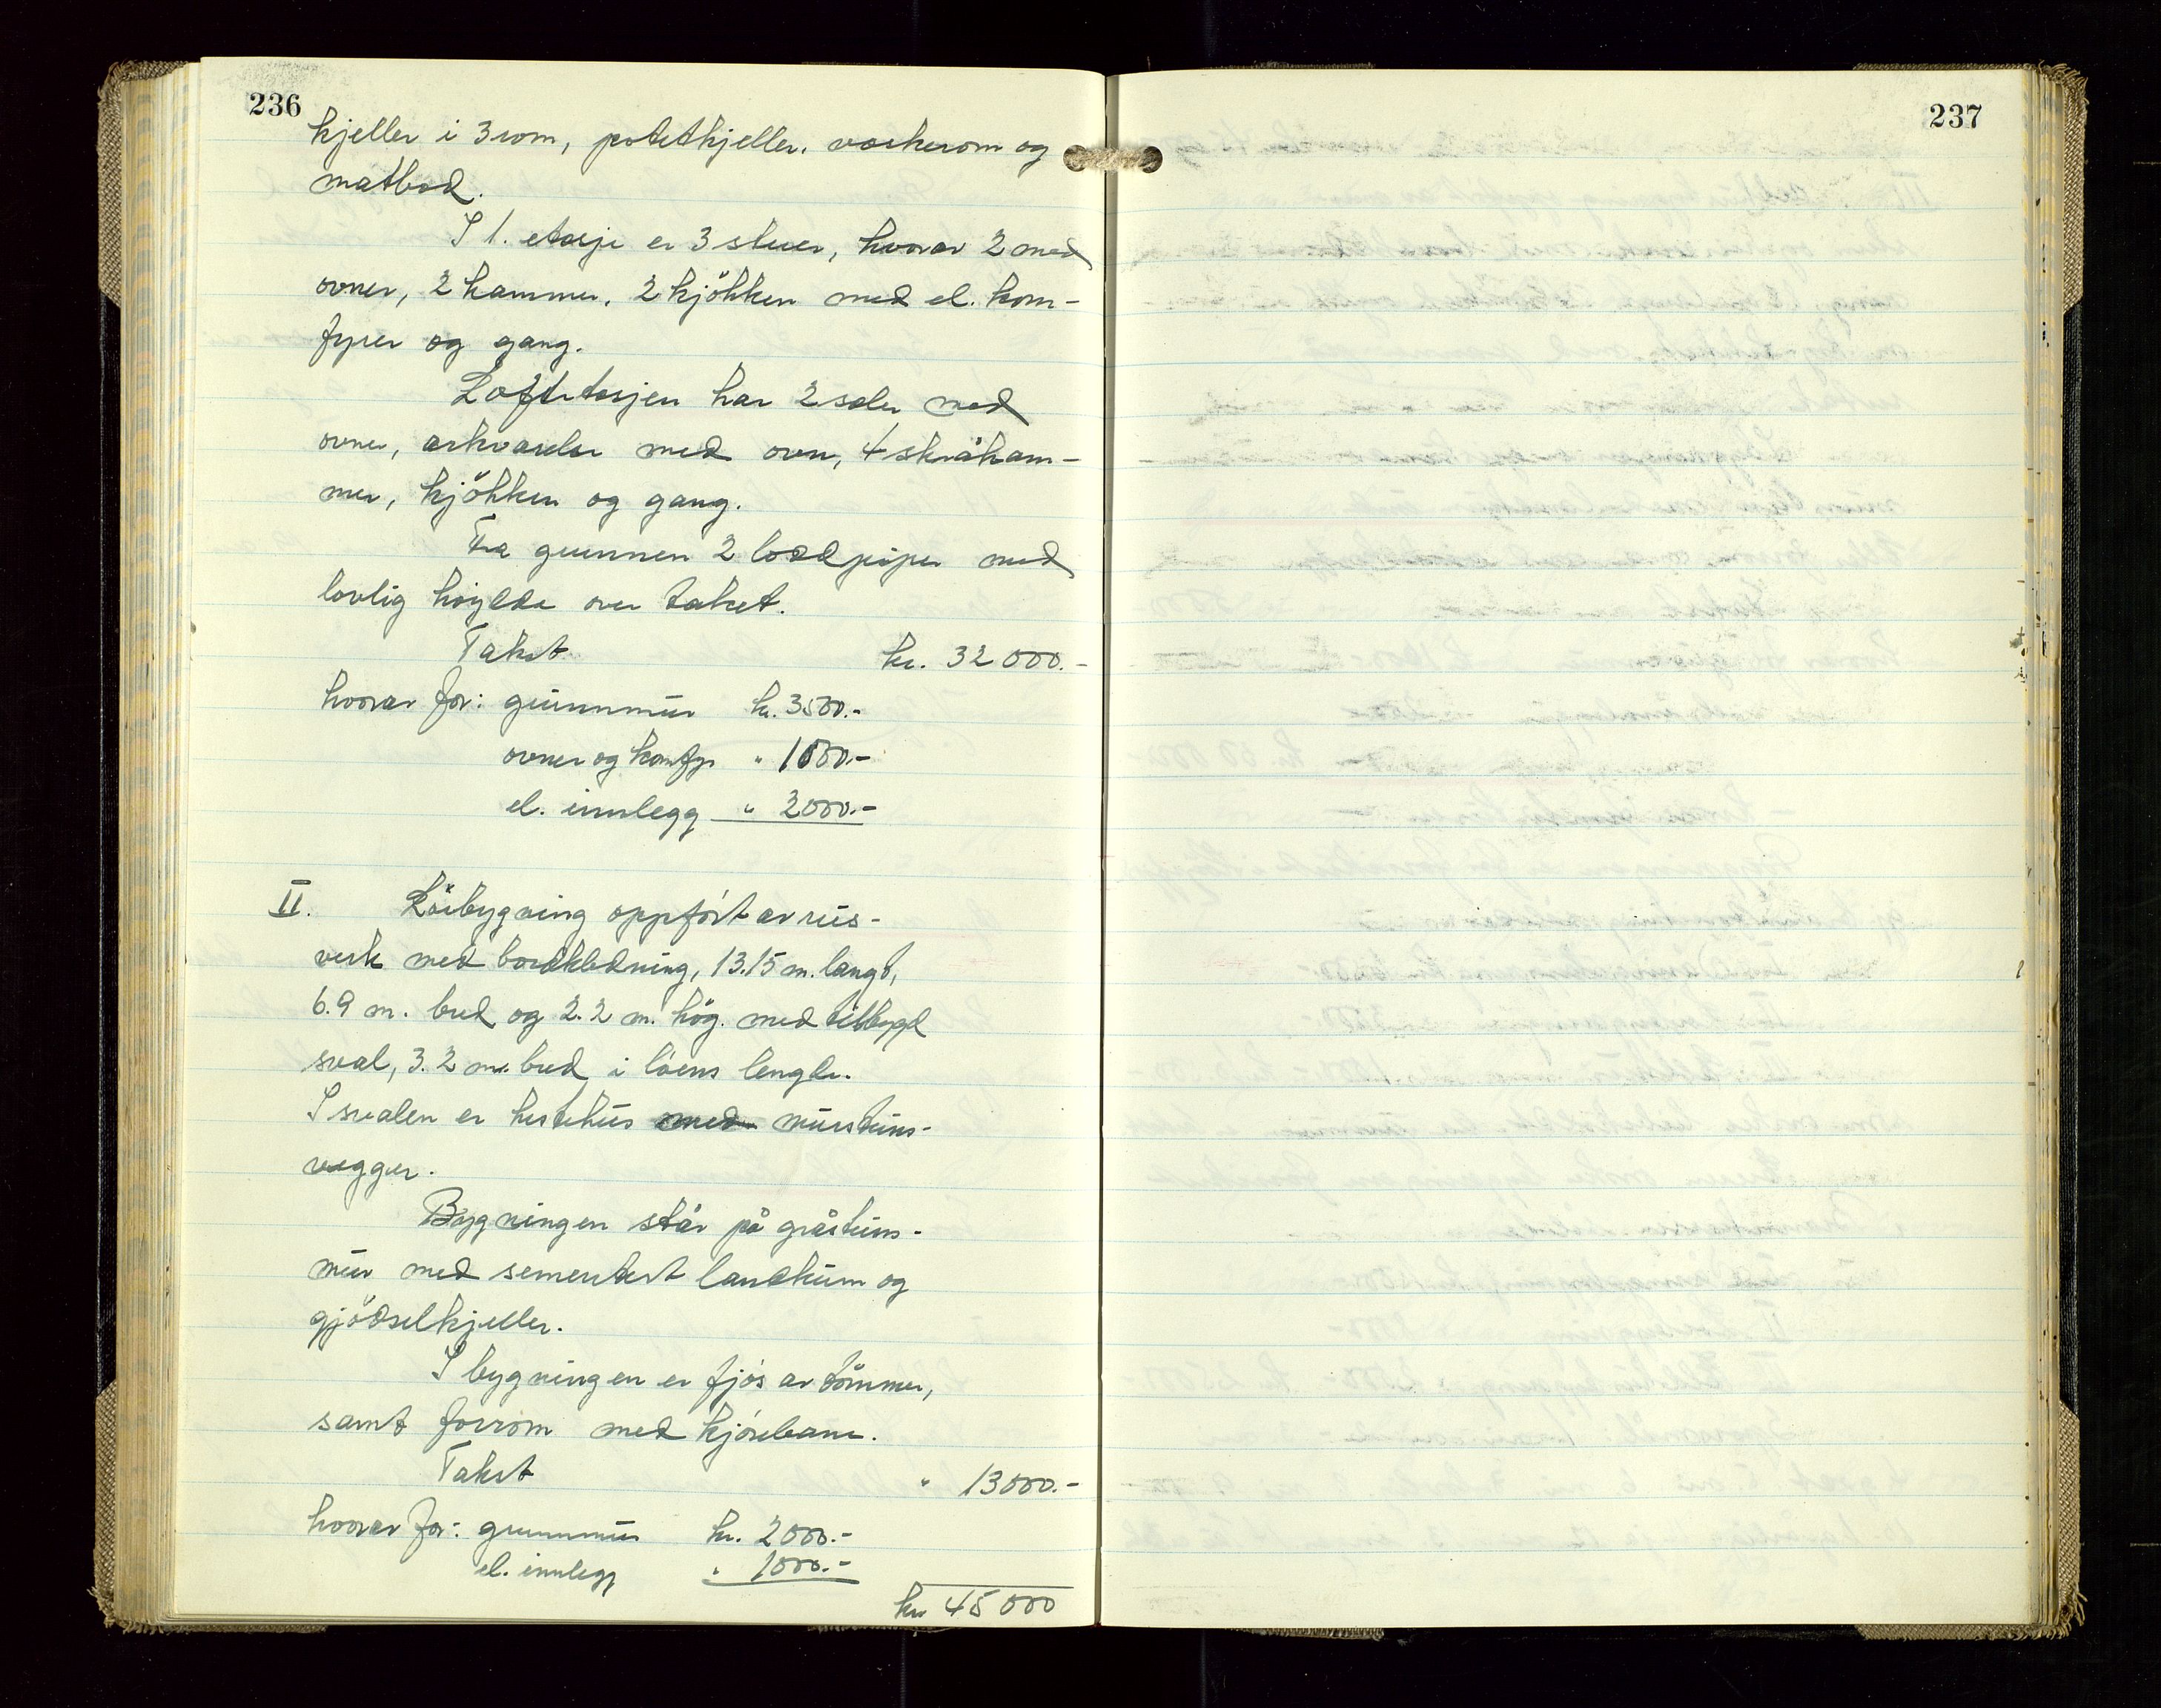 236
kjeller i 3 rom, potetkjeller, vaskerom og
matbod.
I 1. etasje er 3 stuer, hvorav 2 med
ovner, 2 kammer, 2 kjökken med el. kom-
fyrer og gang.
Loftetasjen har 2 saler med
ovner, arkværelse med ovn, 4 skråkam-
mer, kjökken og gang.
Fra grunnen 2 loddpiper med
lovlig höyde over taket.
Takst kr. 32 000.-
hvorav for: grunnmur kr. 3500.-
ovner og komfyr " 1000.-
el. innlegg " 2000.-
II. Löebygning oppfört av reis-
verk med bordkledning, 13.15 m. langt,
6.9 m. bred og 2.2 m. hög. med tilbygd
sval, 3.2 m. bred i löens lengde.
I svalen er hestehus med murstens-
vegger.
Bygningen står på gråsteins-
mur med sementert landkum og
gjödselkjeller.
I bygningen er fjös av tömmer,
samt forrom med kjörebane.
Takst " 13000.-
hvorav for: grunnmur kr. 2000.-
el. innlegg " 1000.-
kr 45 000
237